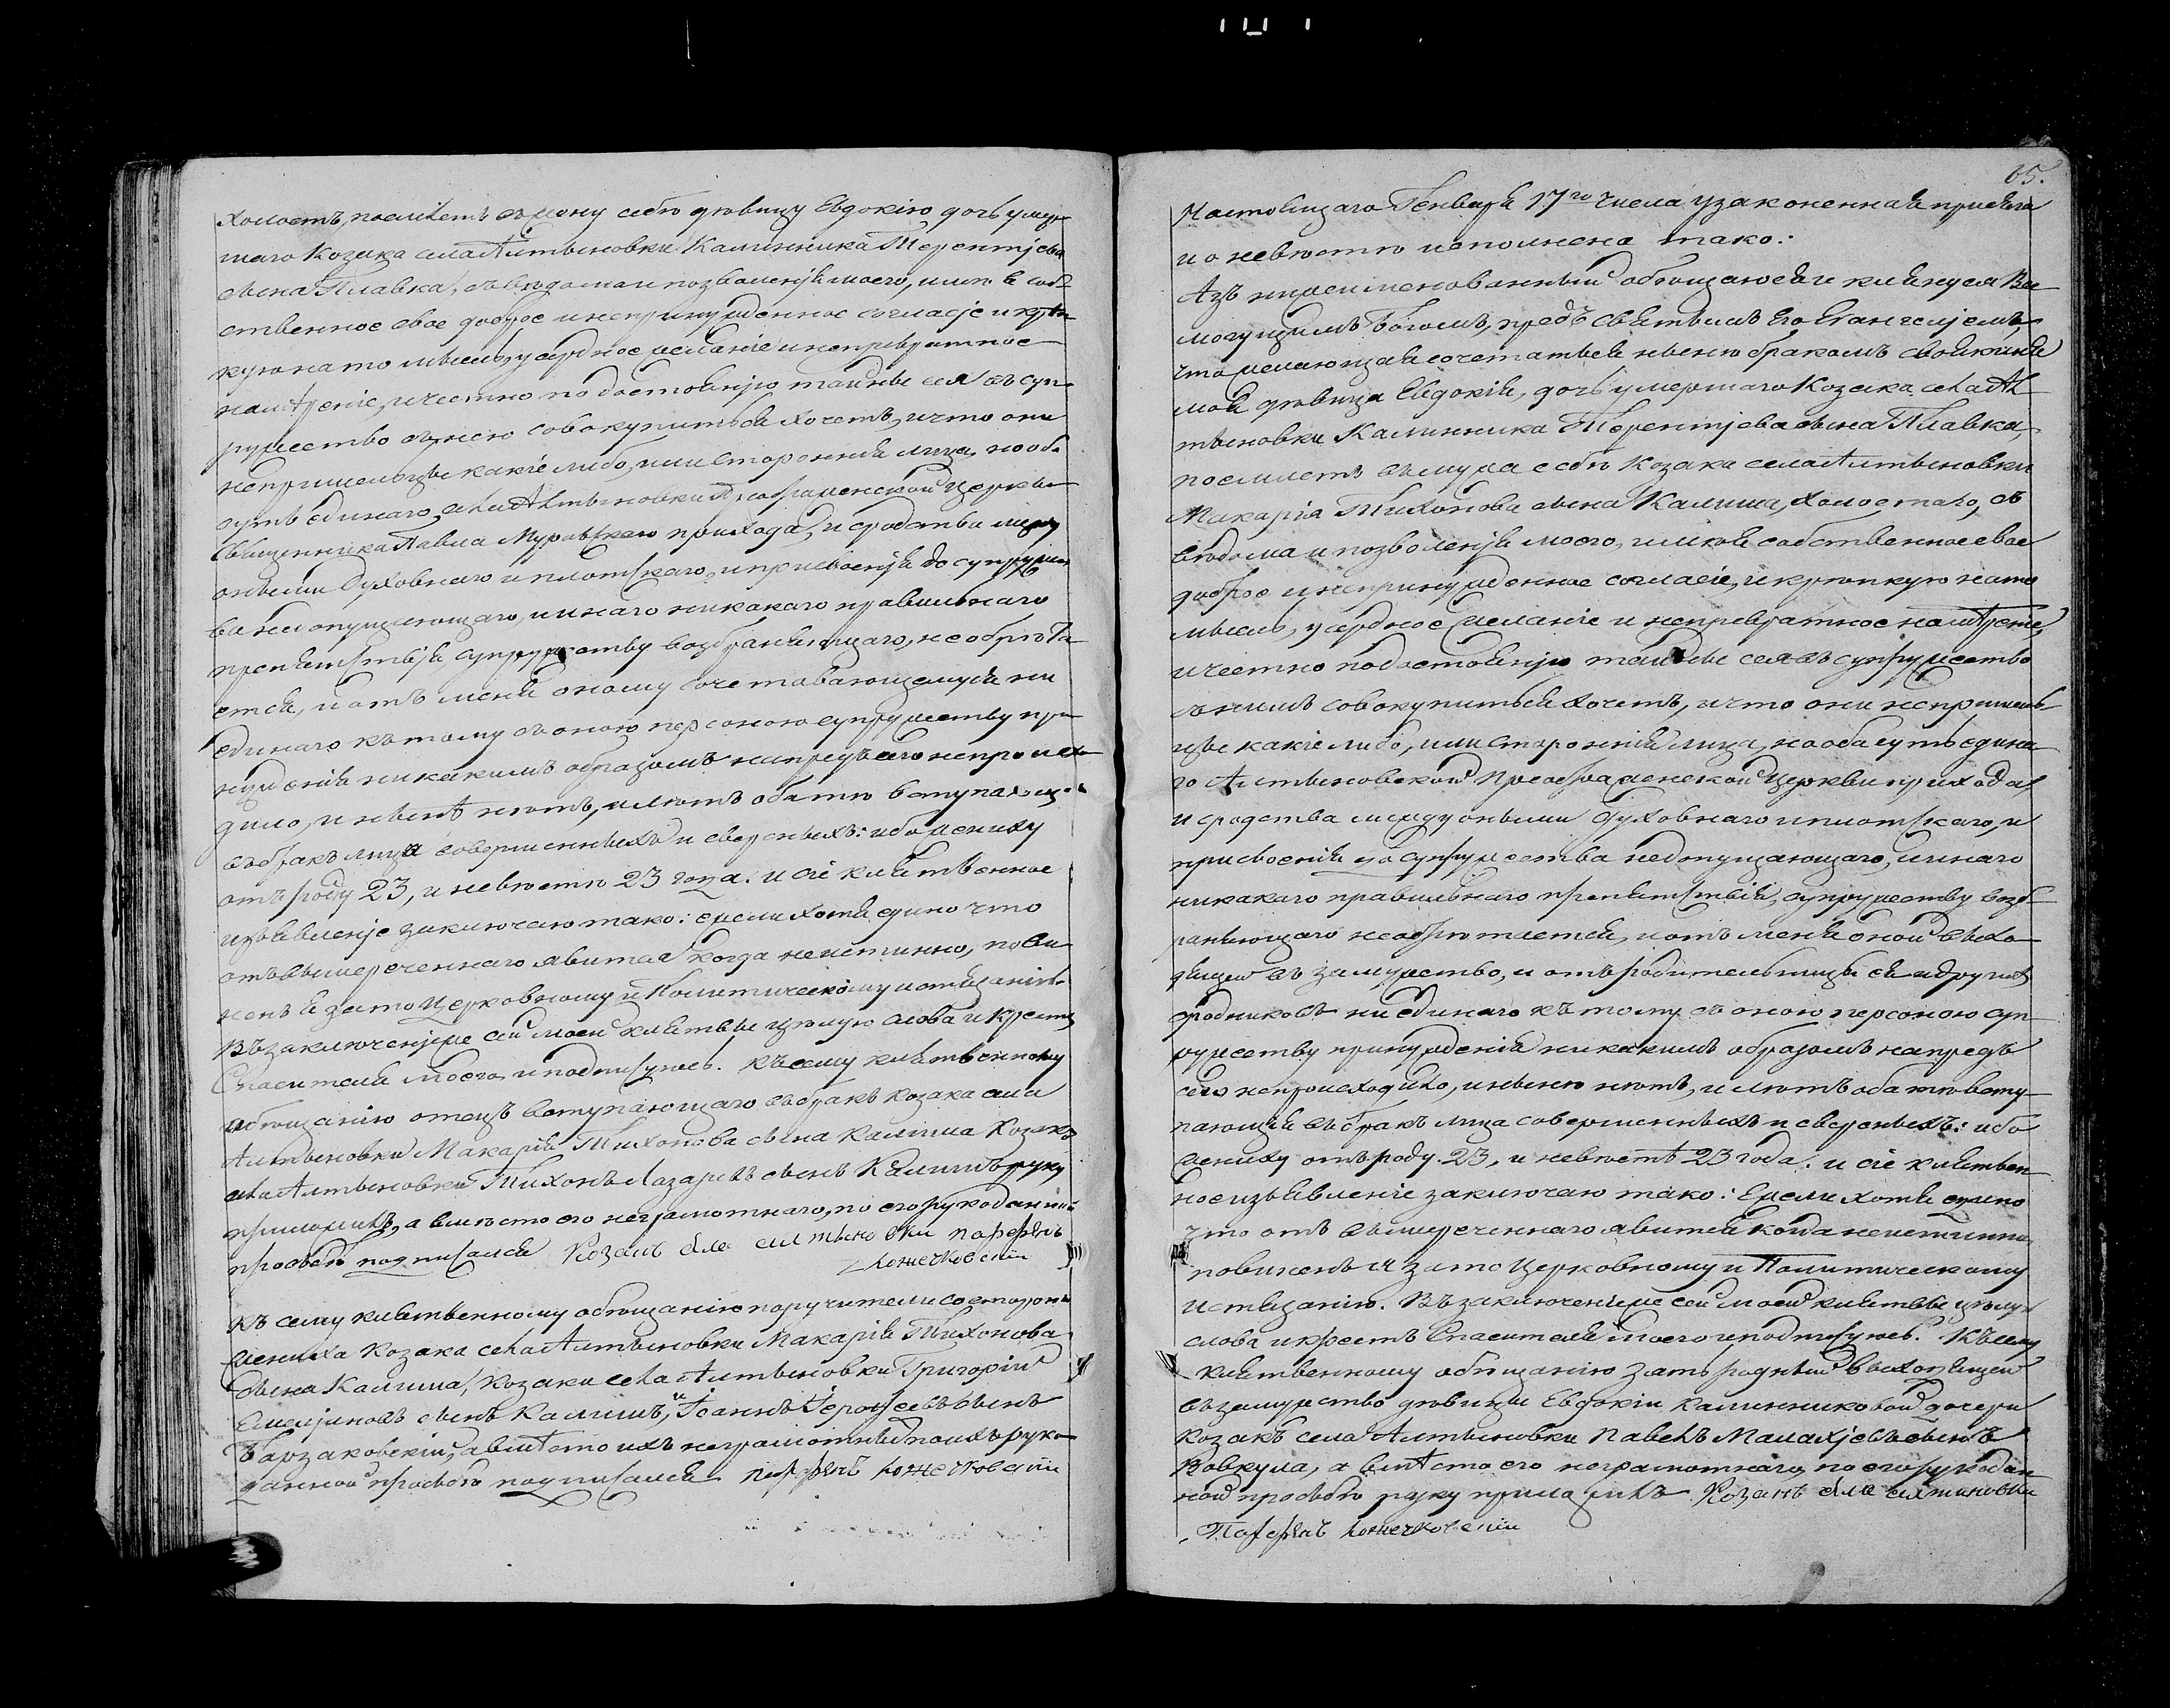 холостъ, поемлетъ въ жону себѣ дѣвицу Евдокію, дочь умер
шаго Козака села Алтыновки Калинника Терентіева
сына Плавка, съ вѣдома и позволенія моего, имѣя соб
ственное свое доброе и непринужденное согласіе и крѣп
кую на то мысль, усердное желаніе и непревратное
намѣреніе, и честно по достоянію тайны сея въ суп
ружество съ нею совокупиться хочетъ, и что они
непришельцы какіе либо, или сторонніи лица, но оба
суть единаго села Алтыновки Преображенской Церкви
Священника Павла прихода, и сродства между
оными Духовнаго и плотскаго, и присвоенія до супружес
ва недопущающаго, и инаго никакаго правильнаго
препятствія, супружеству возбраняющаго, не обрѣта
ется, и отъ меня оному сочетавающемуся ни
единаго къ тому съ оною персоною супружеству при
нужденія никакимъ образомъ напредъ сего непроисхо
дило, и нынѣ нѣтъ, и лѣтъ оба тѣ вступающи
въ бракъ лица совершенныхъ и сверсныхъ: ибо жениху
отъ роду 23, и невѣстѣ 23 года. и сіе клятвенное
изъявленіе заключаю тако: ежели хотя едино что
отъ вышереченнаго явится когда неистинно, пови
ненъ я за то Церковному и Политическому истязанію.
Въ заключеніе же сей моей клятвы цѣлую слова и Крестъ
Спасителя моего и подписуюсь. Къ сему клятвенному
обѣщанію отецъ вступающаго въ бракъ козака села
Алтыновки Макарія Тихонова сына Калиша Козакъ
села Алтыновки Тихонъ Лазаревъ сынъ Калишъ руку
приложилъ, а вмѣсто его неграмотнаго, по его рукоданной
прозьбѣ подписался Козакъ села алтыновки парфенъ
Къ сему клятвенному обѣщанію поручители со стороны
жениха козака села Алтыновки Макарія Тихонова
сына Калиша, козаки села Алтыновки Григорій
Емеліяновъ сынъ Калишъ, и Іоаннъ сынъ
а вмѣсто ихъ неграмотныхъ по ихъ руко
данной прозьбѣ подписался парфенъ
65.
Настоящаго Генваря 17го числа узаконенная присяга
и о невѣстѣ исполнена тако:
Азъ нижеименованный обѣщаюся и клянуся Все
могущимъ Богомъ, предъ святымъ Его Евангеліемъ,
что желающая сочетаться нынѣ бракомъ
моя дѣвица Евдокія, дочь умершаго Козака села Ал
тыновки Калинника Терентіева сына Плавка,
поемлетъ въ мужа себѣ Козака села Алтыновки
Макарія Тихонова сына Калиша, холостаго, съ
вѣдома и позволенія моего, имѣя собственное свое
доброе и непринужденное согласіе, и крѣпкую на то
мысль, усердное желаніе и непревратное намѣреніе,
и честно по достоянію тайны сея въ супружество
съ нимъ совокупиться хочетъ, и что они непришель
цы какіе либо, или сторонніи лица, но оба суть едина
го Алтыновской Преображенской Церкви прихода,
и сродства между оными духовнаго и плотскаго, и
присвоенія до супружества недопущающаго, и инаго
никакаго правильнаго препятствія, супружеству возб
раняющаго не обрѣтается, и отъ меня оной выхо
дящей въ замужество, и отъ родительницы ея и другихъ
сродниковъ ни единаго къ тому съ оною персоною суп
ружеству принужденія никакимъ образомъ напредъ
сего непроисходило, и нынѣ нѣтъ, и лѣтъ оба тѣ всту
пающія въ бракъ лица совершенныхъ и сверсныхъ: ибо
жениху отъ роду 23, и невѣстѣ 23 года. и сіе клятвен
ное изъявленіе заключаю тако: Ежели хотя едино
что отъ вышереченнаго явится когда неистинно
повиненъ я за то Церковному и Политическому
истязанію. Въ заключеніе же сей моей клятвы цѣлую
слова и крестъ Спасителя Моего и подписуюсь. Къ сему
клятвенному обѣщанію зять родный выходящей
въ замужство дѣвицы Евдокіи Калинниковой дочери
козакъ села Алтыновки Павелъ Малахіевъ сынъ
Вовкула, а вмѣсто его неграмотнаго по его рукодан
ной прозьбѣ руку приложилъ Козакъ села алтиновки
Парфенъ